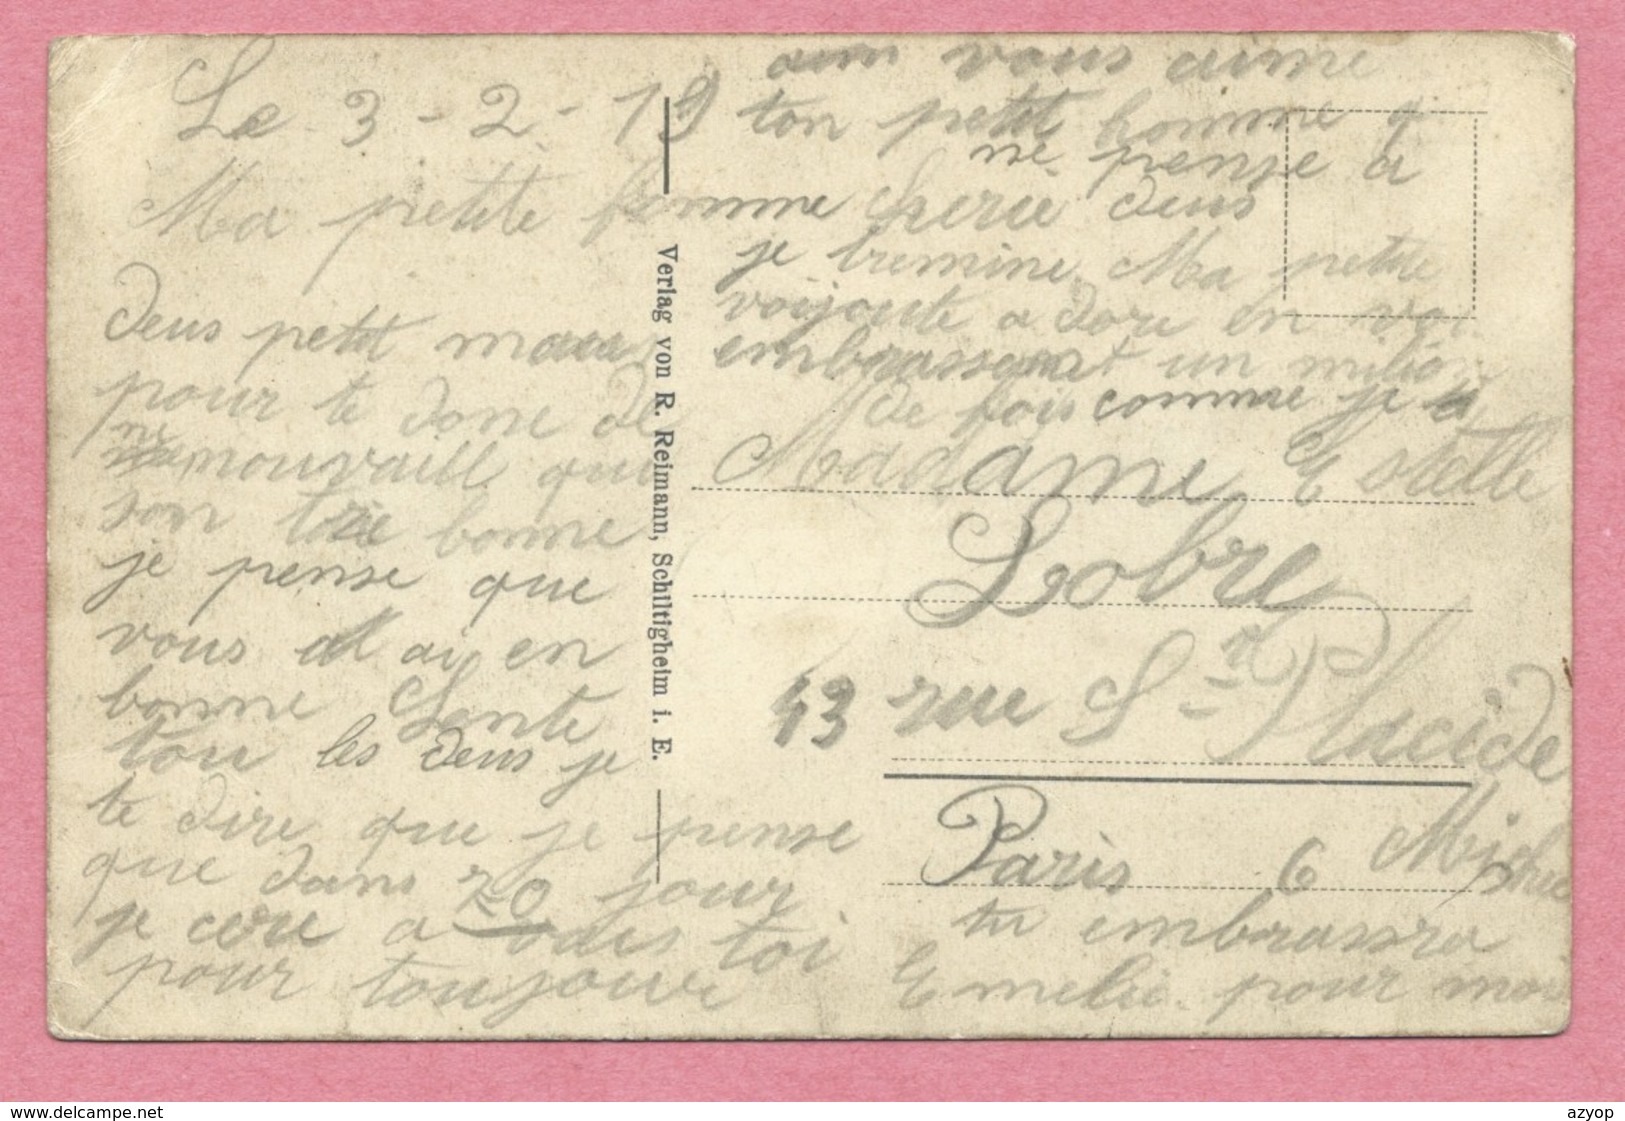 Le 3-2-19
Ma petite femme cherie
deus petit mau
pour te done de
me nouvaill que
son tré bonne
je pense que
vous et ai en
bonne Sente
tou les deus je
te dire que je pense
que dans 20 jour
je cere a toi
pour toujour
Verlag von R. Reimann, Schiltigheim i. E.
vous aime
ton petit homme q
ne pense a
deus
je termine Ma petite
embrassant un milion
de fois comme je
Madame Estelle
Lobre
43 rue St Placide
Paris 6
tu embrassra
Emelie pour moi
www.delcampe.net
azyop